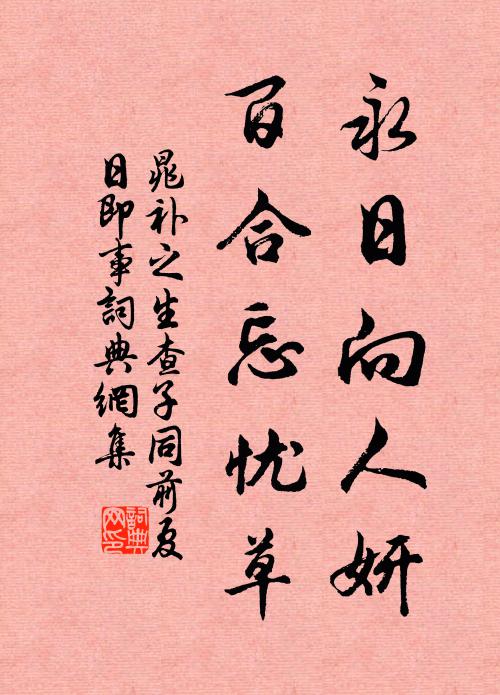 永日向人妍
百合忘忧草
晁补之生查子同前夏
日即事詞典網集
詞典网印